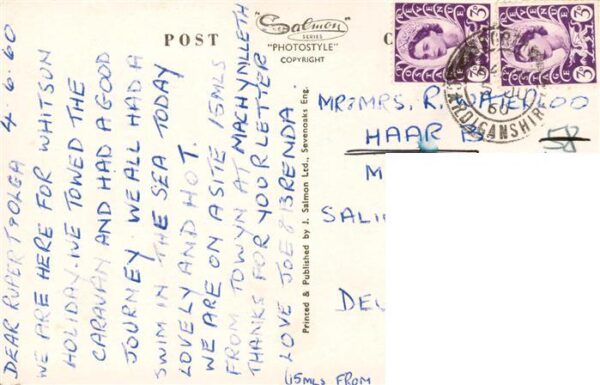 4.6.60
DEAR RUPERT & OLGA
WE ARE HERE FOR WHITSUN
HOLIDAY. WE TOWED THE
CARAVAN AND HAD A GOOD
JOURNEY WE ALL HAD A
SWIM IN THE SEA TODAY
LOVELY AND HOT.
WE ARE ON A SITE 15MLS
FROM TOWYN AT MACHYNLLETH
THANKS FOR YOUR LETTER
LOVE JOE & BRENDA.
POST
"Salmon"
SERIES
"PHOTOSTYLE"
COPYRIGHT
C
Printed & Published by J. Salmon Ltd., Sevenoaks Eng.
POSTAGE REVENUE
3D
POSTAGE REVENUE
3D
JU
60
CARDIGANSHIRE
MR & MRS. R. WATERLOO
HAAR
58
M
SALI
DE
15MLS FROM